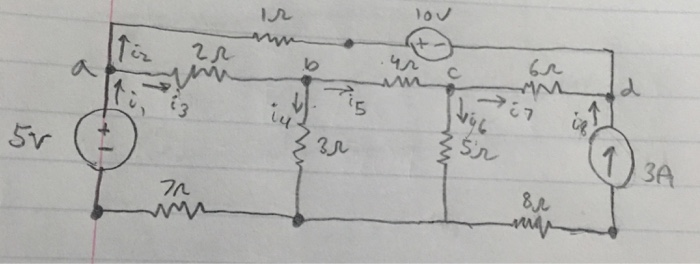 1Ω 10V
+ -
i2 2Ω b 4Ω c 6Ω d
a
i1 i3 i4 i5 i6 i7 i8
5V + - 3Ω 5Ω 3A
7Ω 8Ω